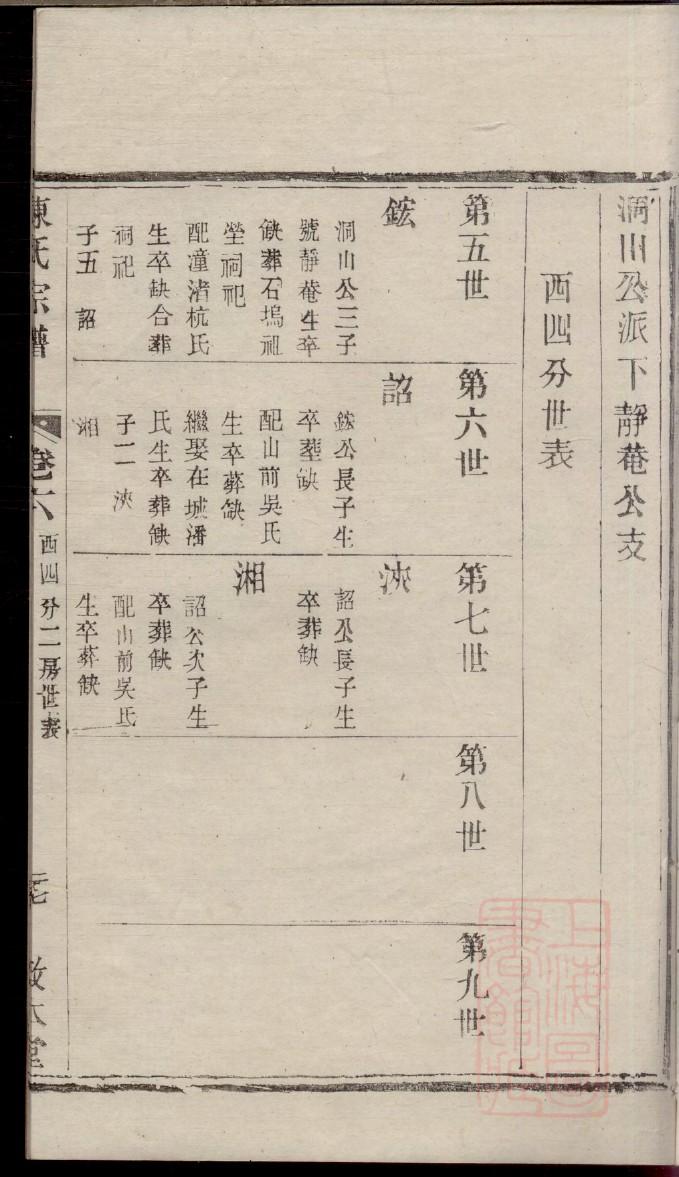 洞山公派下靜菴公支
西四分世表
第五世
鋐
洞山公三子
號靜菴生卒
缺葬石塢祖
塋祠祀
配潼渚杭氏
生卒缺合葬
祠祀
子五 詔
第六世
詔
鋐公長子生
卒塟缺
配山前吳氏
生卒葬缺
繼娶在城潘
氏生卒葬缺
子二 浹
湘
第七世
浹
詔公長子生
卒葬缺
湘
詔公次子生
卒葬缺
配山前吳氏
生卒葬缺
第八世
第九世
陳氏宗譜
卷六
西四分二房世表
敦本堂
上海圖書館藏